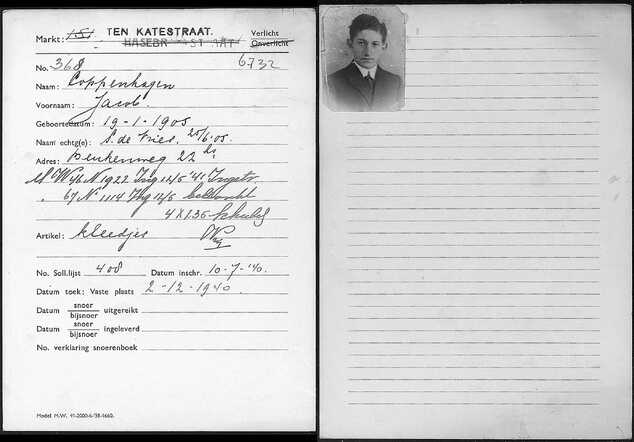 Markt: 151 TEN KATESTRAAT. Verlicht
Onverlicht
No. 368 6732
Naam: Coppenhagen
Voornaam: Jacob
Geboortedatum: 19-1-1905
Naam echtg(e): S. de Vries. 25/6.05.
Adres: Beukenweg 22 hs
M W46 N 1922 Ing 12/5 '41
67 N 1114 Ing 12/5
4 X 1.35
Artikel: kleedjes
No. Soll.lijst 408 Datum inschr. 10-7-'40.
Datum toek: Vaste plaats 2-12-1940.
Datum snoer uitgereikt
bijsnoer
Datum snoer ingeleverd
bijsnoer
No. verklaring snoerenboek
Model M.W. 41-2000-6/38-1660.